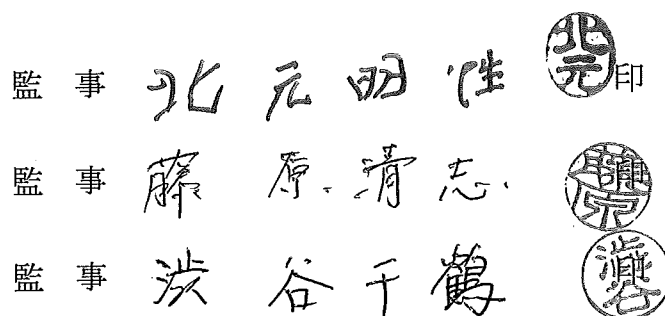 監 事 北 元 明 性 北元 印
監 事 藤 原 清 志 藤原
監 事 渋 谷 千 鶴 澁谷